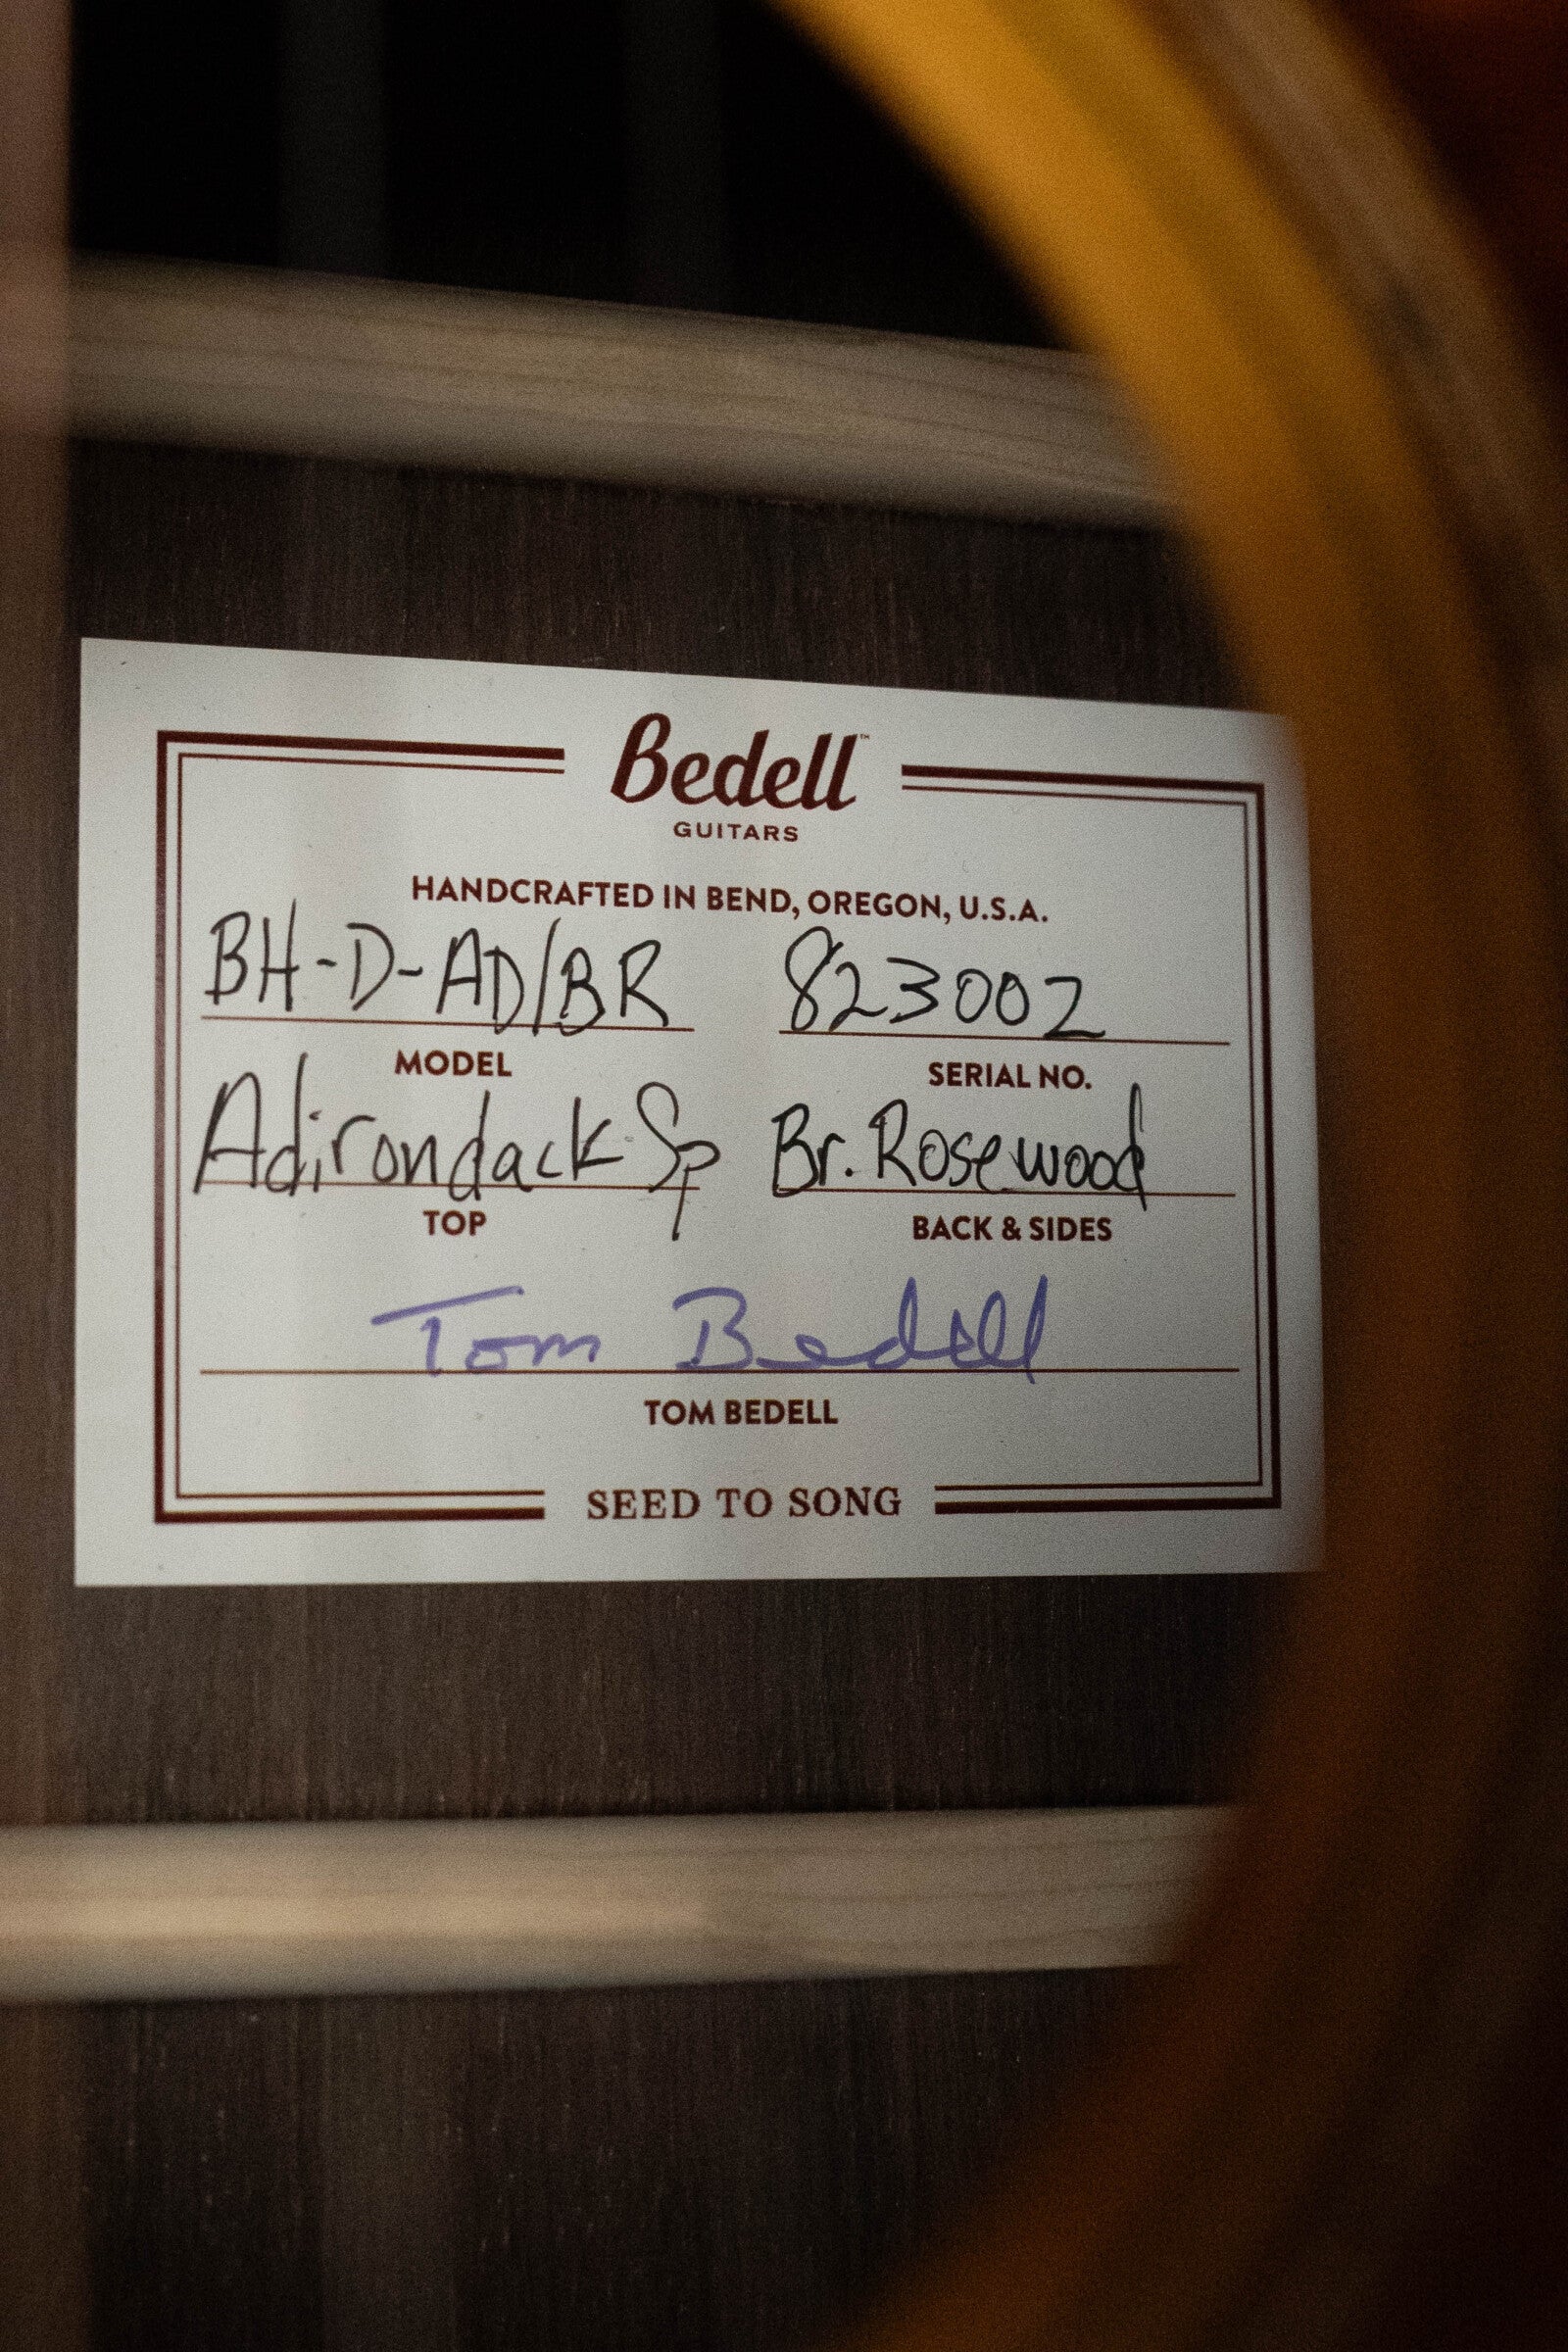 Bedell™
GUITARS
HANDCRAFTED IN BEND, OREGON, U.S.A.
BH-D-AD/BR 823002
MODEL SERIAL NO.
Adirondack Sp Br. Rosewood
TOP BACK & SIDES
Tom Bedell
TOM BEDELL
SEED TO SONG